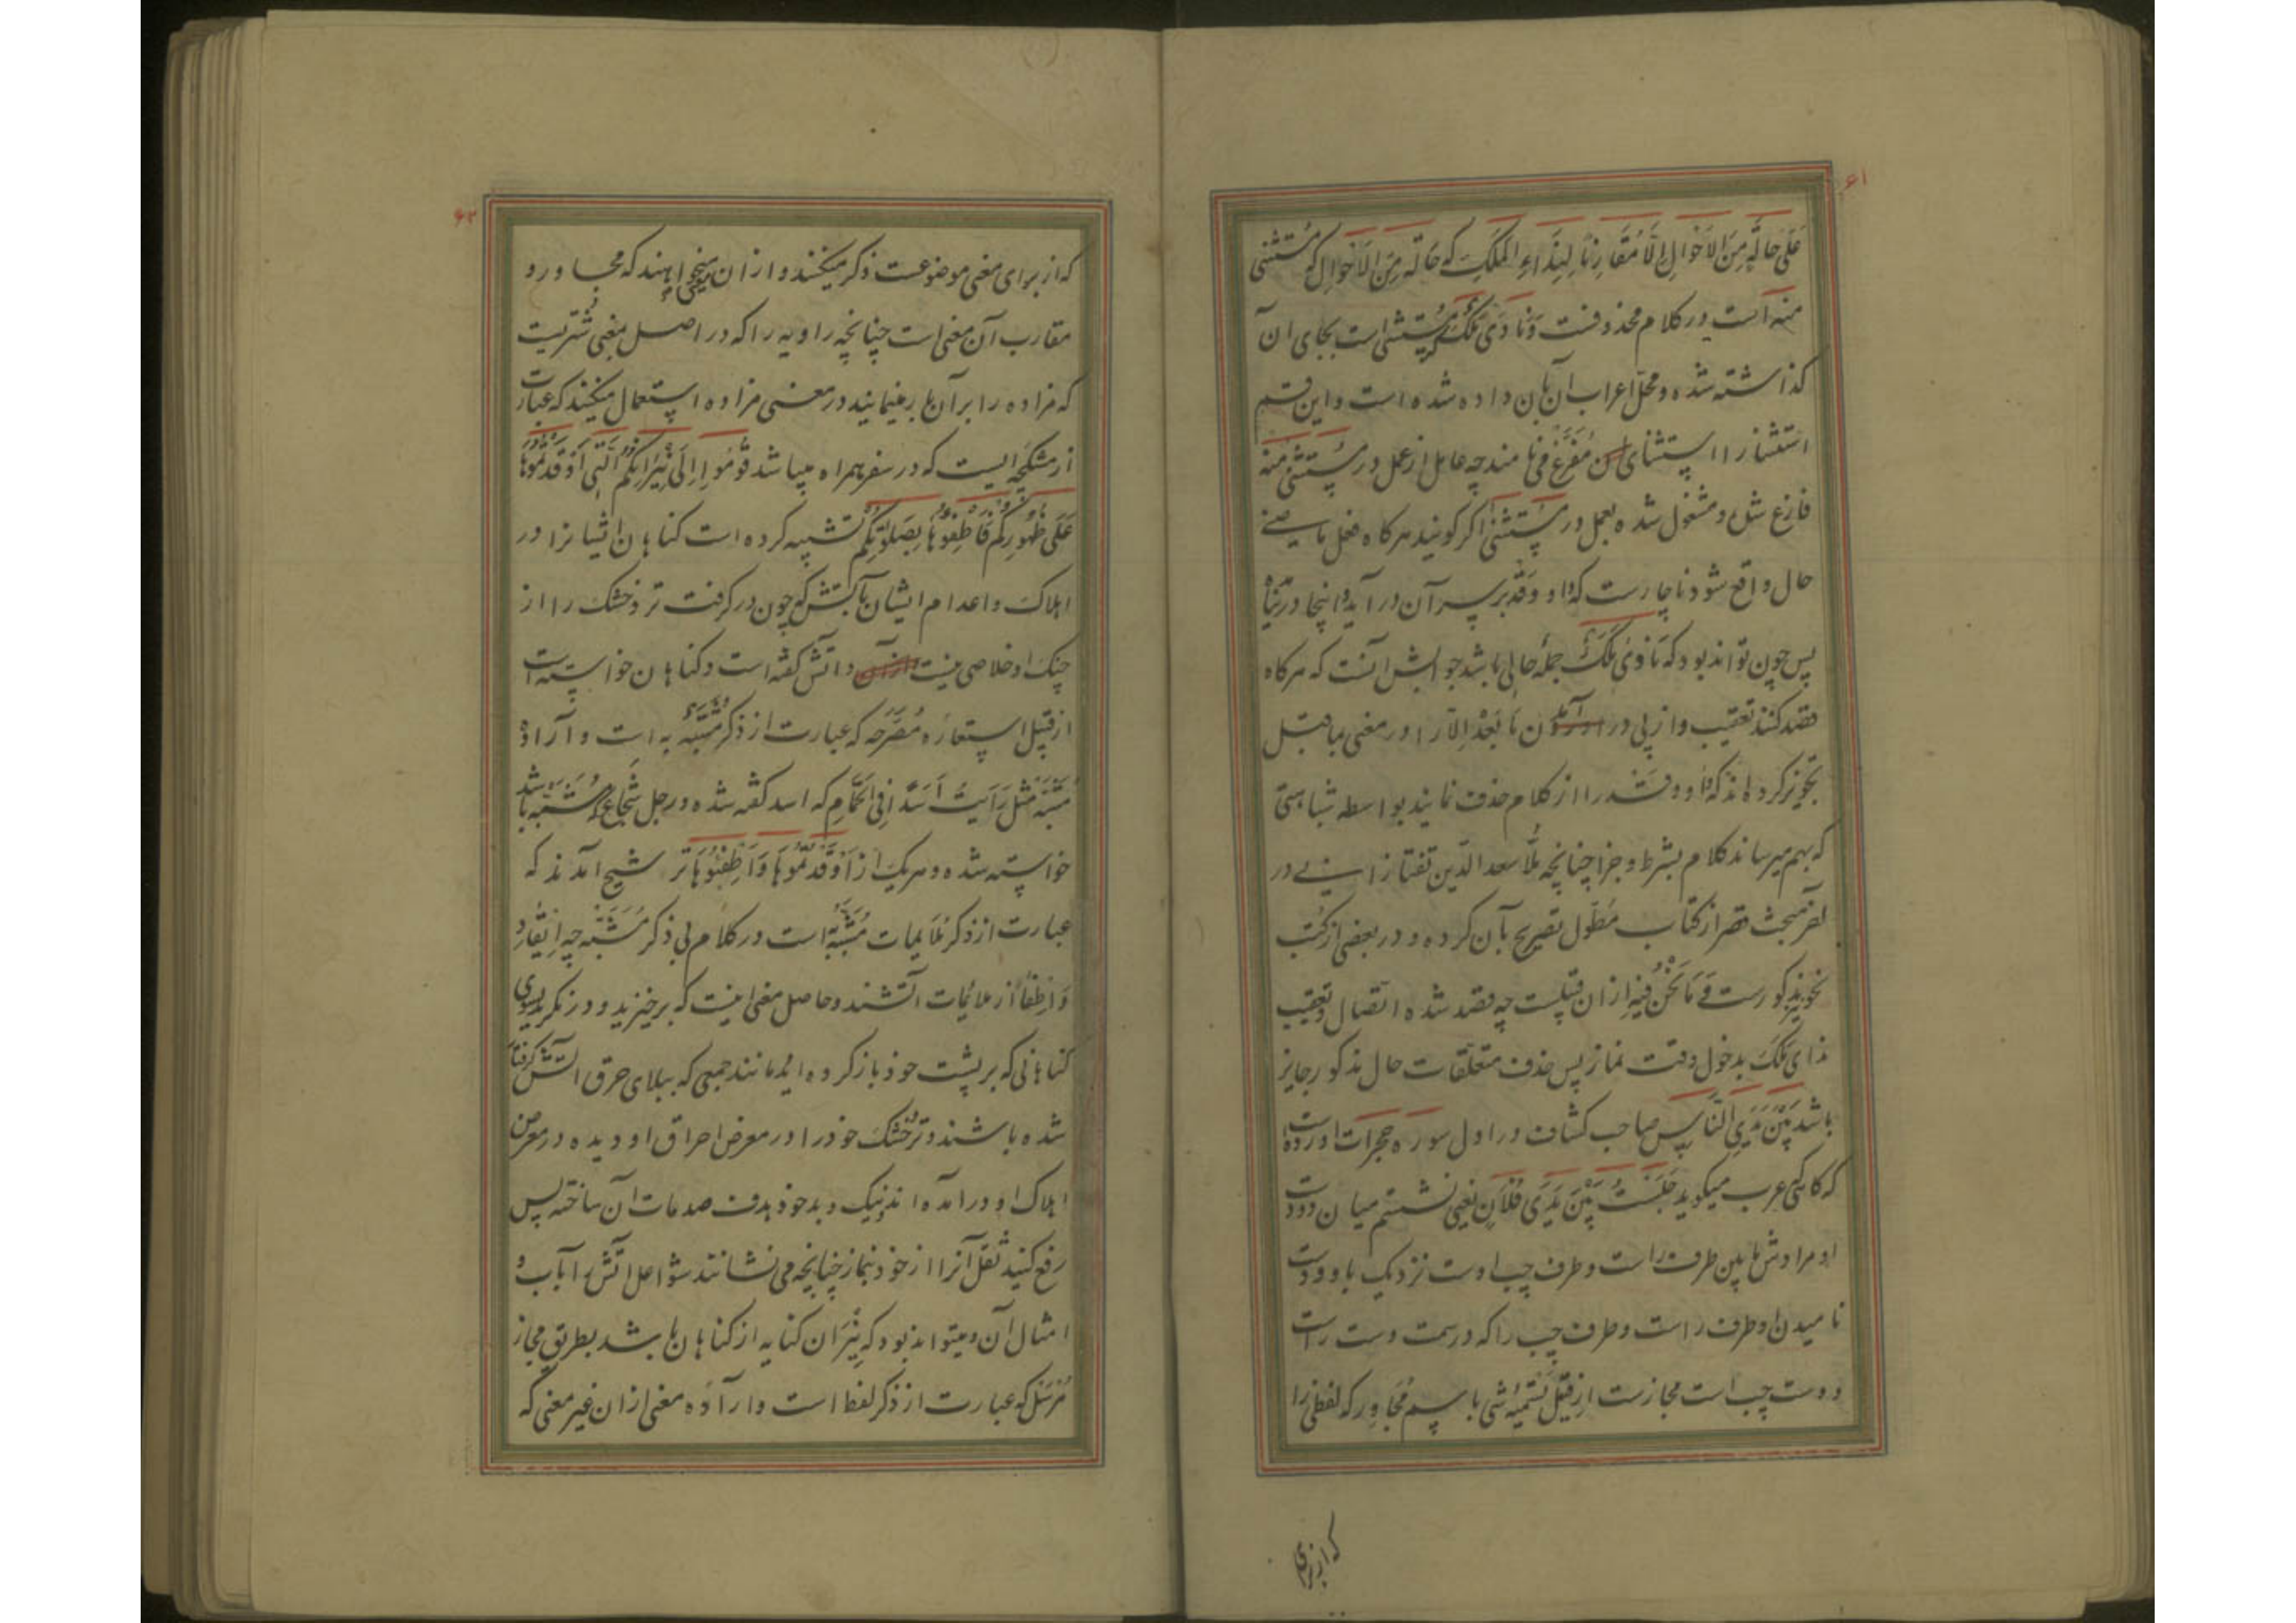 ۶۱
عَلَی حَالَةٍ مِنَ الاَحْوَالِ اِلَّا مُقَارِنًا لِنِدَاءِ المَلَكِ كه حَالَةٍ مِنَ الاَحْوَالِ كه مستثنی
منه است در كلام محذوفست وَنَادَی مَلَكٌ كه مستثنی است بجای ان
كذاشته شده و محل اعراب ان بان داده شده است و این قسم
استثنا را استثنای مُفَرَّغ می نامند چه عامل از عمل در مستثنی منه
فارغ شده و مشغول شده بعمل در مستثنی اكر كویند هركاه فعل ماضی
حال واقع شود ناچارست كه واو و قد بر سر آن در آید و اینجا در نیامده
پس چون تواند بود كه نادی ملك جملهٔ حالی باشد جوابش آنست كه هركاه
قصد كنند تعقیب و از پی در آمدن مَا بَعْدِ اِلّا را در معنی بما قبل
تجویز كرده اند كه واو و قد را از كلام حذف نمایند بواسطه شباهتی
كه بهم میرساند كلام بشرط و جزا چنانچه ملّا سعد الدّین تفتازانی در
اخر مبحث قصر از كتاب مُطَوّل تصریح بآن كرده و در بعضی از كتب
نحو نیز مذكورست وَ مَا نَحْنُ فِیْهِ ازان قبیلست چه قصد شده اتصال و تعقیب
ندای مَلَك بدخول وقت نماز پس حذف متعلّقات حال مذكور جایز
باشد بَیْنَ یَدَیِ النَّاسِ صاحب كشاف در اول سوره حجرات اورده است
كه كاهی عرب میكوید جَلَسْتُ بَیْنَ یَدَی فُلَانٍ یعنی نشستم میان دو دست
او مرادش مابین طرف راست و طرف چپ اوست نزدیك باو و دست
نامیدن او طرف راست و طرف چپ را كه در سمت دست راست
و دست چپ است مجازست از قبیل تَسْمِیَهٔ شی باسم مُجَاوِر كه لفظی را
كه از برای
۶۲
كه از برای معنی موضوعست ذكر میكنند و ازان معنی میخواهند كه مجاور و
مقارب آن معنی است چنانچه راویه را كه در اصل بمعنی شتریست
كه مزاده را بر آن بار مینمایند در معنی مزاده استعمال میكنند كه عبارت
از مشكچه ایست كه در سفر همراه میباشد قُوْمُوا اِلَی نِیْرَانِكُمُ الَّتِی اَوْقَدْتُمُوهَا
عَلَی ظُهُورِكُم فَاطْفِؤُهَا بِصَلوتِكُم تشبیه كرده است كناهان ایشانرا در
اهلاك و اعدام ایشان بآتش كه چون در كرفت تر و خشك را از
چنك او خلاصی نیست و اتش كفته است و كناهان خواسته است
از قبیل استعارَه مُصَرَّحَه كه عبارت از ذكر مُشَبَّهٌ به است و ارادهٔ
مُشَبَّه مثل رَاَیْتُ اَسَدًا فِی الحَمَّامِ كه اسد كفته شده و رجل شجاع كه مُشَبَّه باشد
خواسته شده و هریك از اَوْقَدْتُمُوهَا وَ اَطْفِئُوهَا ترشیح امدند كه
عبارت از ذكر ملایمات مُشَبَّهٌ به است در كلام بی ذكر مُشَبَّه چه اِیْقَاد
وَ اِطفا از ملائمات اتشند و حاصل معنی اینست كه برخیزید و در نكرید بسوی
كناهانی كه بر پشت خود بار كرده اید مانند جمعی كه ببلای حرق اتش كرفتار
شده باشند و تر و خشك خود را در معرض احراق او دیده در معرض
اهلاك او در امده اند و نیك و بد خود هدف صدمات ان ساخته پس
رفع كنید ثقل آنرا از خود بنماز چنانچه می نشانند شواعل اتش را باب و
امثال ان و میتواند بود كه نِیْرَان كنایه از كناهان باشد بطریق مجاز
مُرْسَل كه عبارت از ذكر لفظ است و ارادَه معنی ازان غیر معنی كه